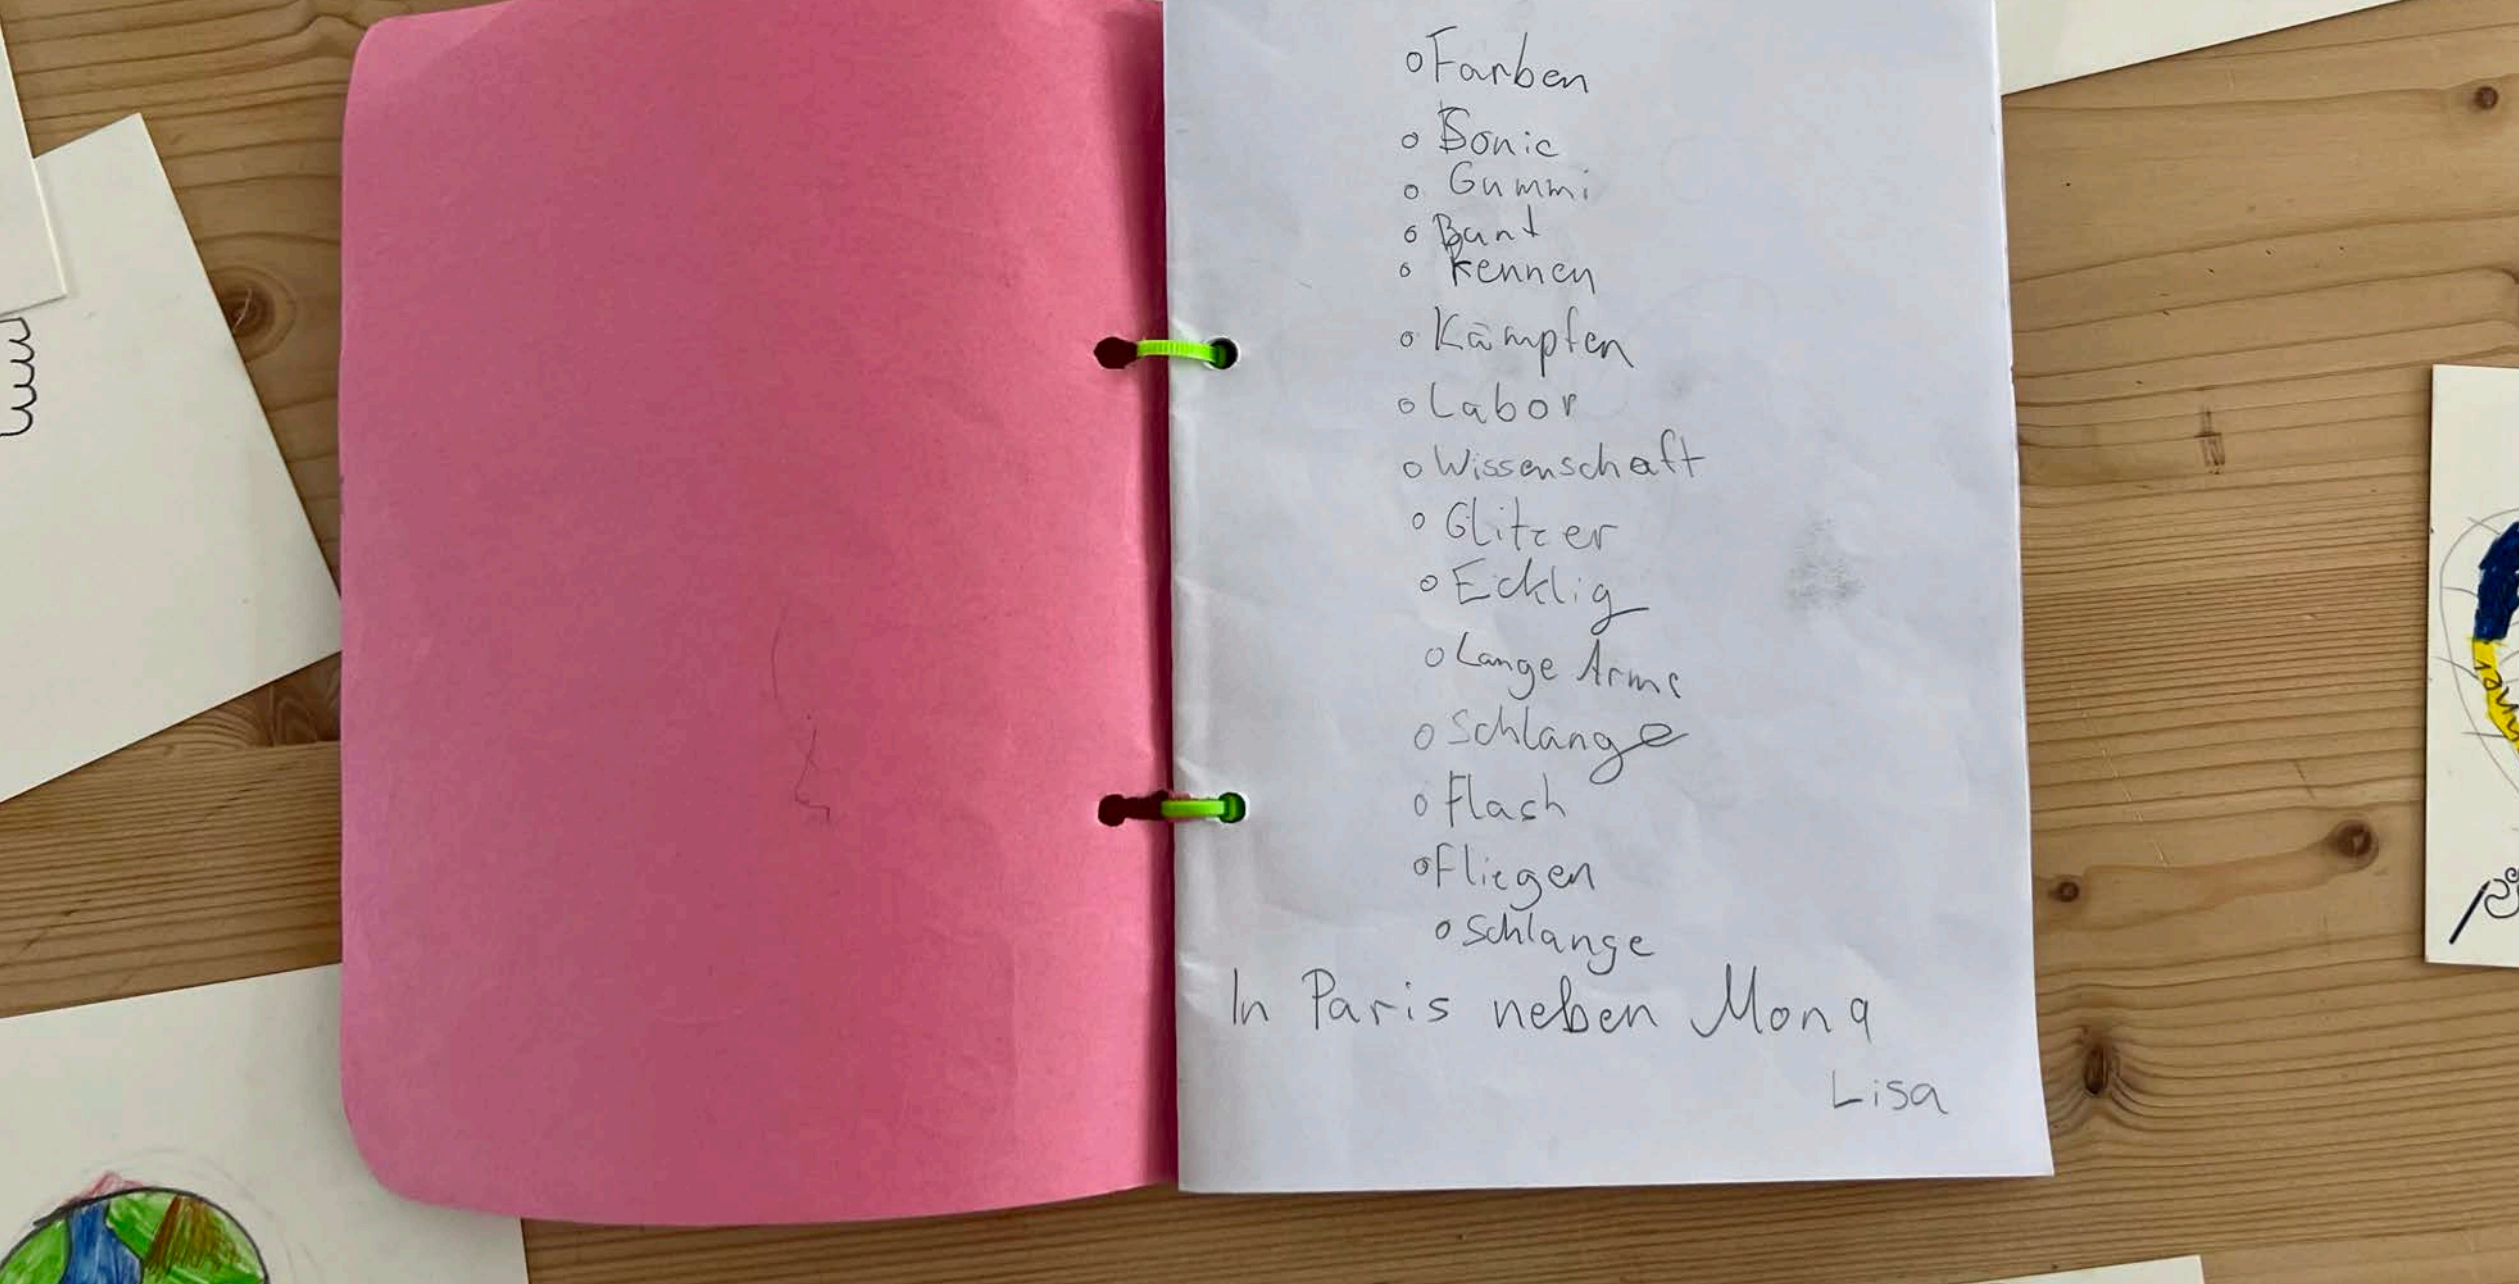 Farben
Sonic
Gummi
Bunt
Kennen
Kämpfen
Labor
Wissenschaft
Glitzer
Ecklig
Lange Arme
Schlange
Flash
Fliegen
Schlange
In Paris neben Mona
Lisa